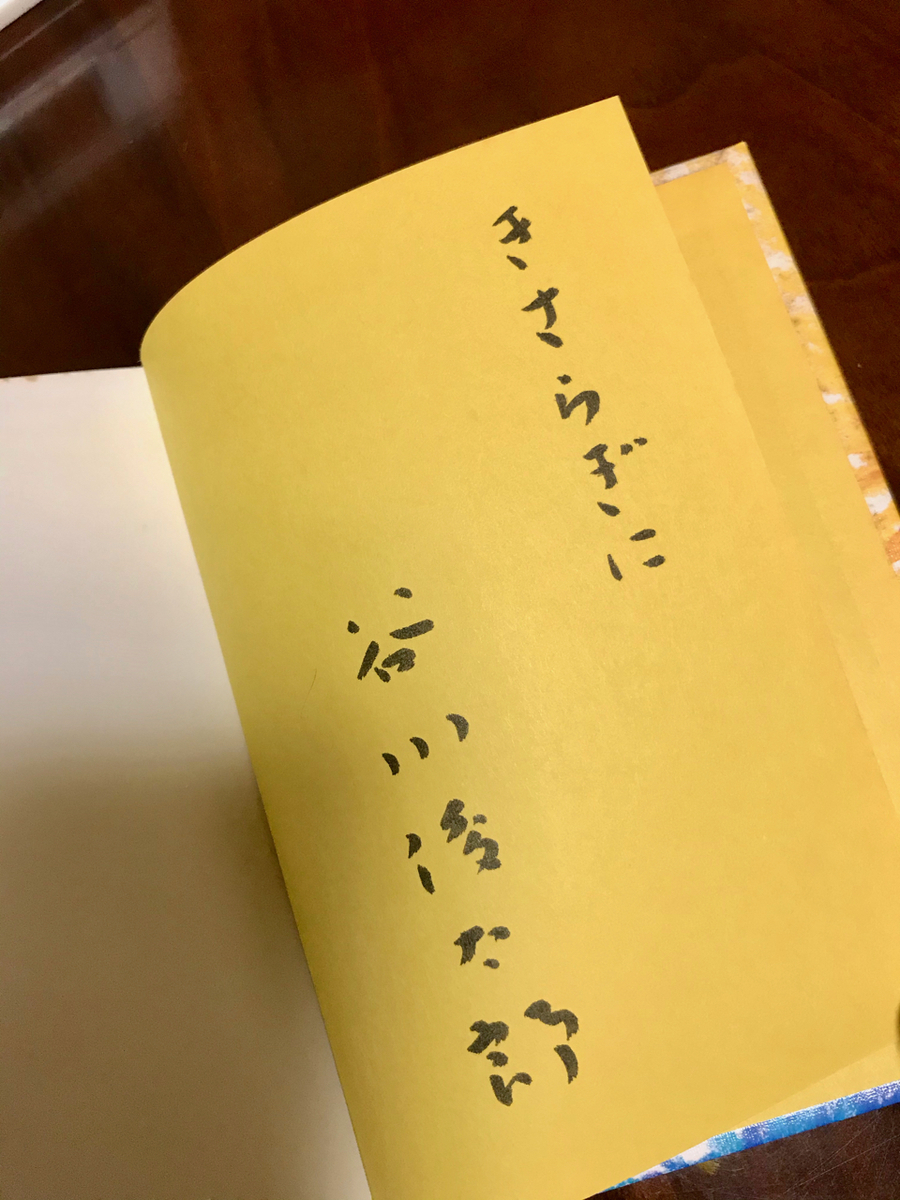 きさらぎに
谷川俊太郎